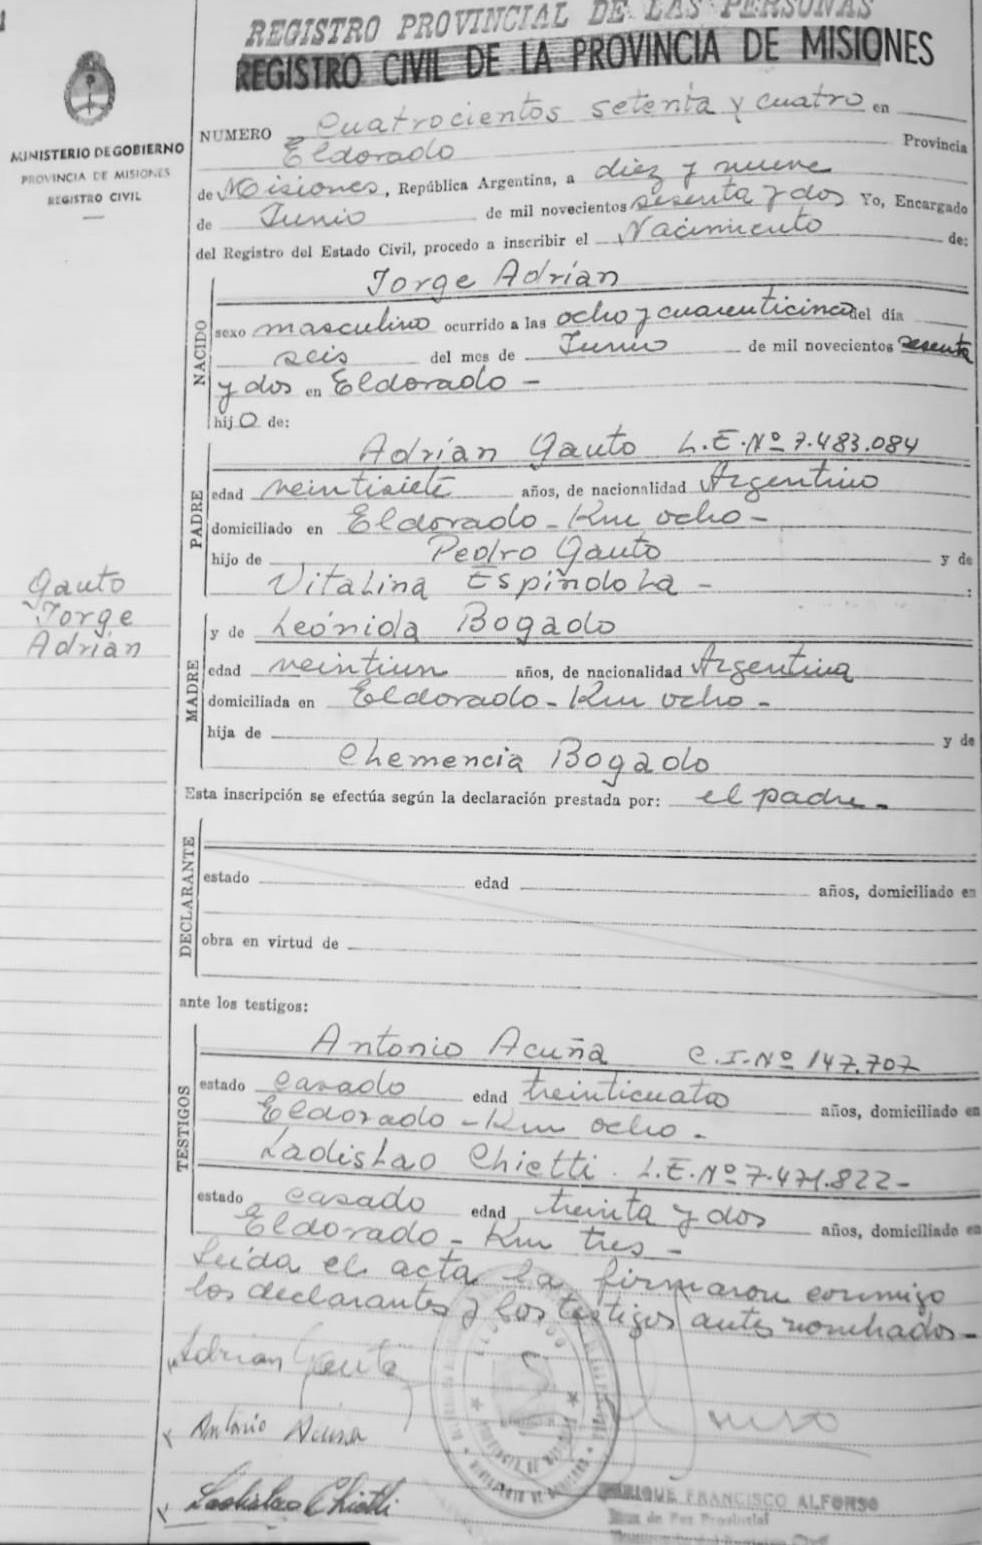 REGISTRO PROVINCIAL DE LAS PERSONAS
REGISTRO CIVIL DE LA PROVINCIA DE MISIONES
MINISTERIO DE GOBIERNO
PROVINCIA DE MISIONES
REGISTRO CIVIL
NUMERO Cuatrocientos setenta y cuatro en
Eldorado Provincia
de Misiones, República Argentina, a diez y nueve
de Junio de mil novecientos sesenta y dos Yo, Encargado
del Registro del Estado Civil, procedo a inscribir el Nacimiento de:
NACIDO
Jorge Adrián
sexo masculino ocurrido a las ocho y cuarenticinco del día
seis del mes de Junio de mil novecientos sesenta
y dos en Eldorado -
hijo de:
PADRE
Adrián Gauto L.E.Nº 7.483.084
edad veintisiete años, de nacionalidad Argentino
domiciliado en Eldorado - Km ocho -
hijo de Pedro Gauto y de
Vitalina Espíndola - :
Gauto
Jorge
Adrián
MADRE
y de Leónida Bogado
edad veintiun años, de nacionalidad Argentina
domiciliada en Eldorado - Km ocho -
hija de y de
Clemencia Bogado
Esta inscripción se efectúa según la declaración prestada por: el padre -
DECLARANTE
estado edad años, domiciliado en
obra en virtud de
ante los testigos:
TESTIGOS
Antonio Acuña C.I.Nº 147.707
estado casado edad treinticuatro años, domiciliado en
Eldorado - Km ocho -
Ladislao Chietti L.E.Nº 7.471.822-
estado casado edad treinta y dos años, domiciliado en
Eldorado - Km tres -
Leída el acta la firmaron conmigo
los declarantes y los testigos antes nombrados -
Adrian Gauto
Antonio Acuña
Ladislao Chietti
ENRIQUE FRANCISCO ALFONSO
Juez de Paz Provincial